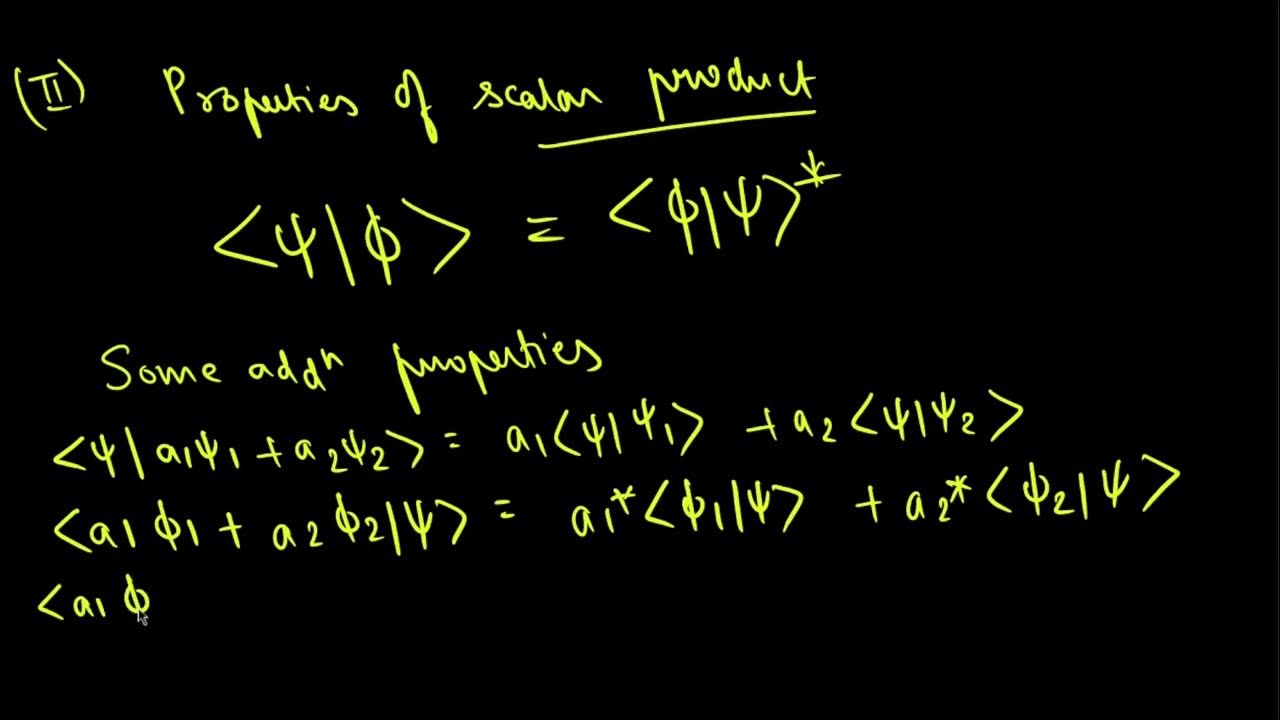 (II) Properties of scalar product
<ψ|ϕ> = <ϕ|ψ>*
Some addⁿ properties
<ψ|a₁ψ₁ + a₂ψ₂> = a₁<ψ|ψ₁> + a₂<ψ|ψ₂>
<a₁ϕ₁ + a₂ϕ₂|ψ> = a₁*<ϕ₁|ψ> + a₂*<ϕ₂|ψ>
<a₁ϕ